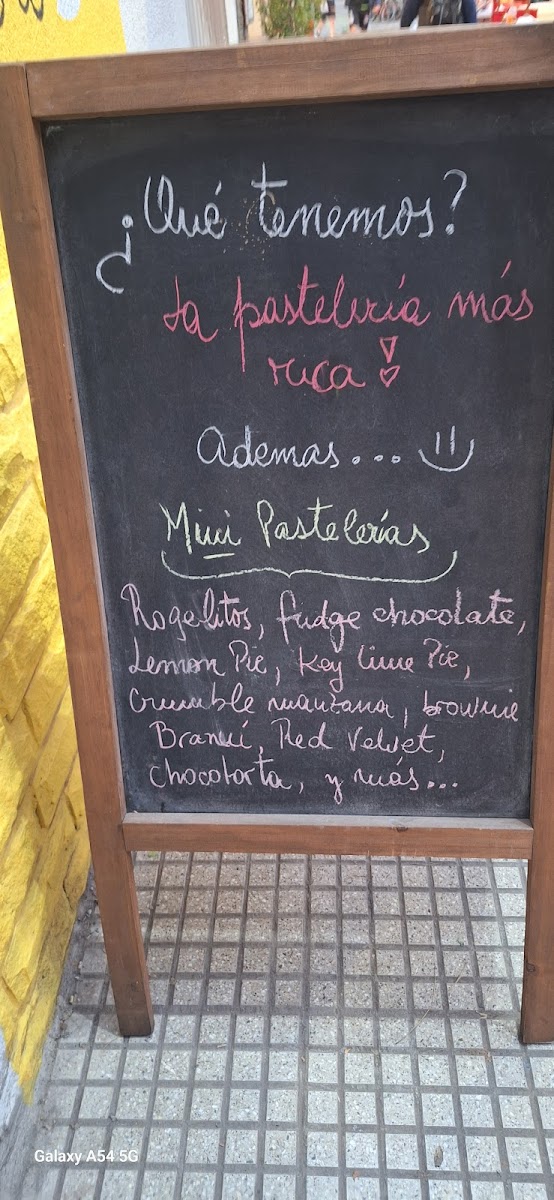 ¿Qué tenemos?
La pastelería más
rica!
Ademas...
Mini Pastelerías
Rogelitos, fudge chocolate,
Lemon Pie, Key lime Pie,
crumble manzana, brownie
Branuí, Red Velvet,
chocotorta, y más...
Galaxy A54 5G